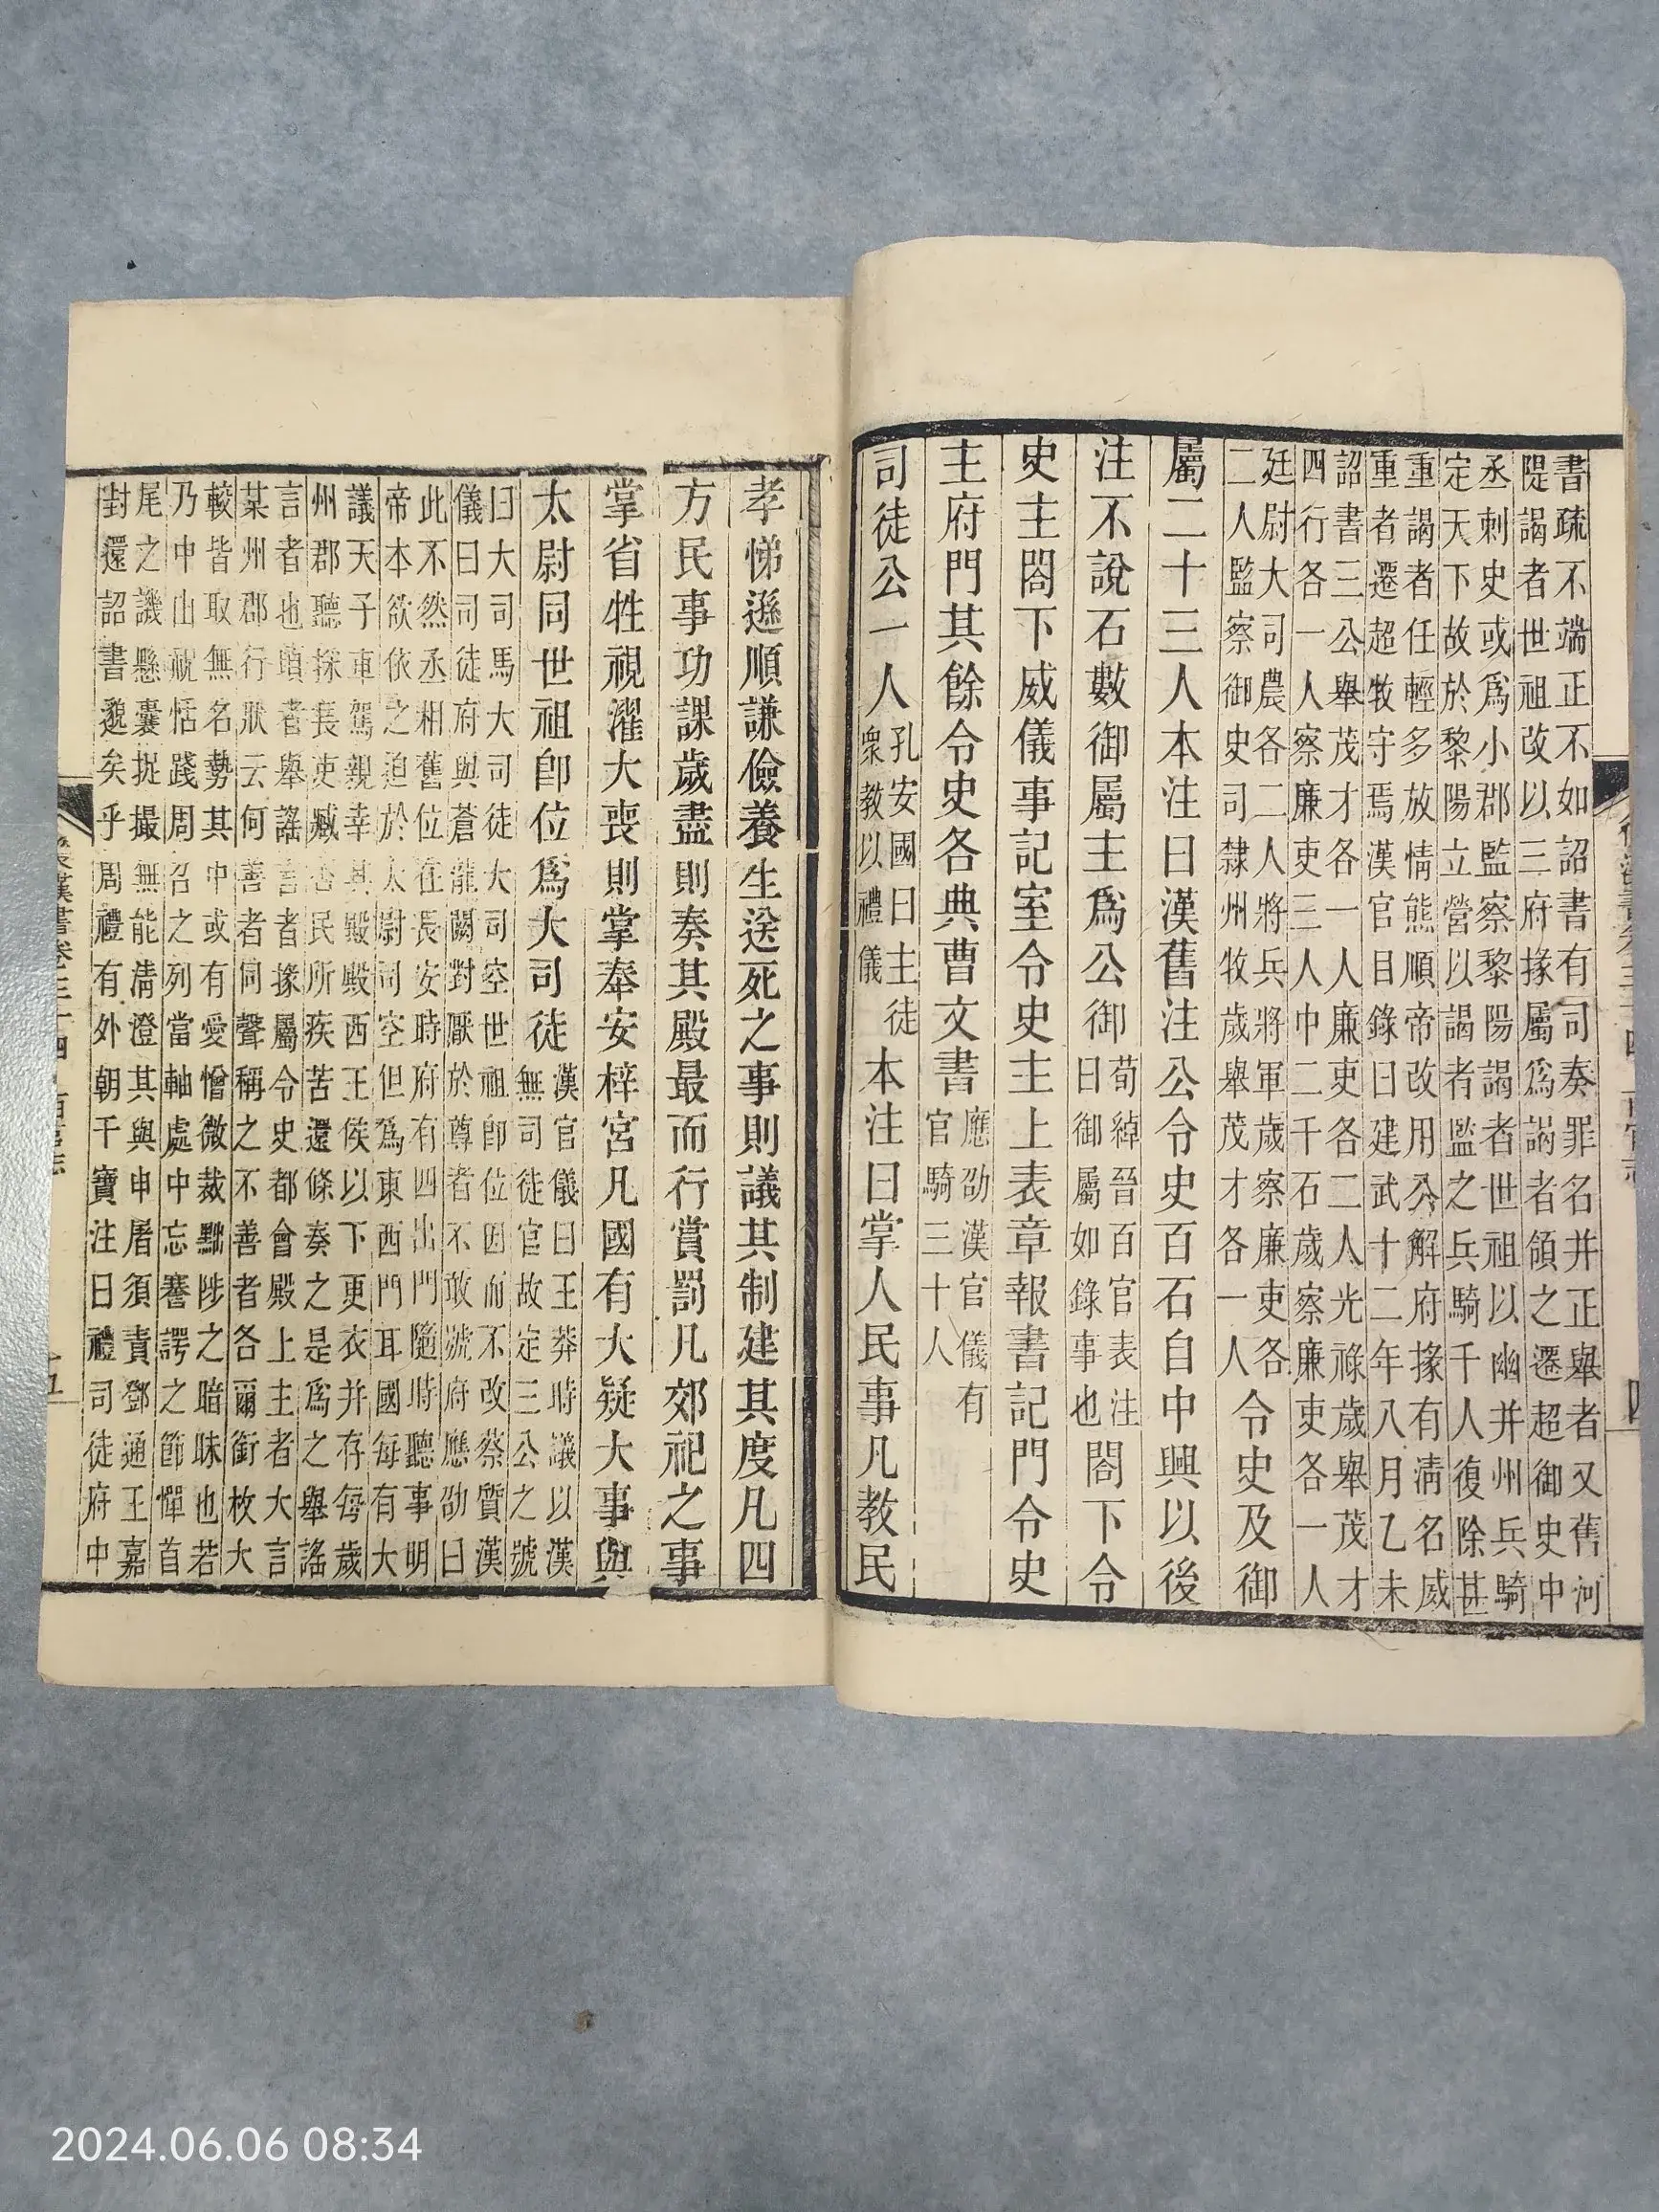 書疏不端正不如詔書有司奏罪名并正舉者又舊河
隄謁者世祖改以三府掾屬爲謁者領之遷超御史中
丞刺史或爲小郡監察黎陽謁者世祖以幽并州兵騎
定天下故於黎陽立營以謁者監之兵騎千人復除甚
重謁者任輕多放情熊順帝改用公解府掾有清名威
重者遷超牧守焉漢官目錄曰建武十二年八月乙未
詔書三公舉茂才各一人廉吏各二人光祿歲舉茂才
四行各一人察廉吏三人中二千石歲察廉吏各一人
廷尉大司農各二人將兵將軍歲察廉吏各
二人監察御史司隸州牧歲舉茂才各一人
令史及御
屬二十三人本注曰漢舊注公令史百石自中興以後
注不說石數御屬主爲公御
荀綽晉百官表注
曰御屬如錄事也
閤下令
史主閤下威儀事記室令史主上表章報書記門令史
主府門其餘令史各典曹文書
應劭漢官儀有
官騎三十人
司徒公一人
孔安國曰主徒
衆教以禮儀
本注曰掌人民事凡教民
後漢書卷三十四 百官志
四
孝悌遜順謙儉養生送死之事則議其制建其度凡四
方民事功課歲盡則奏其殿最而行賞罰凡郊祀之事
掌省牲視濯大喪則掌奉安梓宮凡國有大疑大事與
太尉同世祖卽位爲大司徒
漢官儀曰王莽時議以漢
無司徒官故定三公之號
曰大司馬大司徒大司空世祖卽位因而不改蔡質漢
儀曰司徒府與蒼龍闕對厭於尊者不敢號府應劭曰
此不然丞相舊位在長安時府有四出門隨時聽事明
帝本欲依之迫於太尉司空但爲東西門耳國每有大
議天子車駕親幸其殿殿西王侯以下更衣并存每歲
州郡聽採長吏臧否民所疾苦還條奏之是爲之舉謠
言者也頃者舉謠言者掾屬令史都會殿上主者大言
某州郡行狀云何善者同聲稱之不善者各爾銜枚大
較皆取無名勢其中或有愛憎微裁黜陟之暗昧也若
乃中山祝恬踐周召之列當軸處中忘謇諤之節憚首
尾之譏懸囊捉撮無能清澄其與申屠須責鄧通王嘉
封還詔書邈矣乎周禮有外朝干寶注曰禮司徒府中
後漢書卷三十四 百官志
五
2024.06.06 08:34